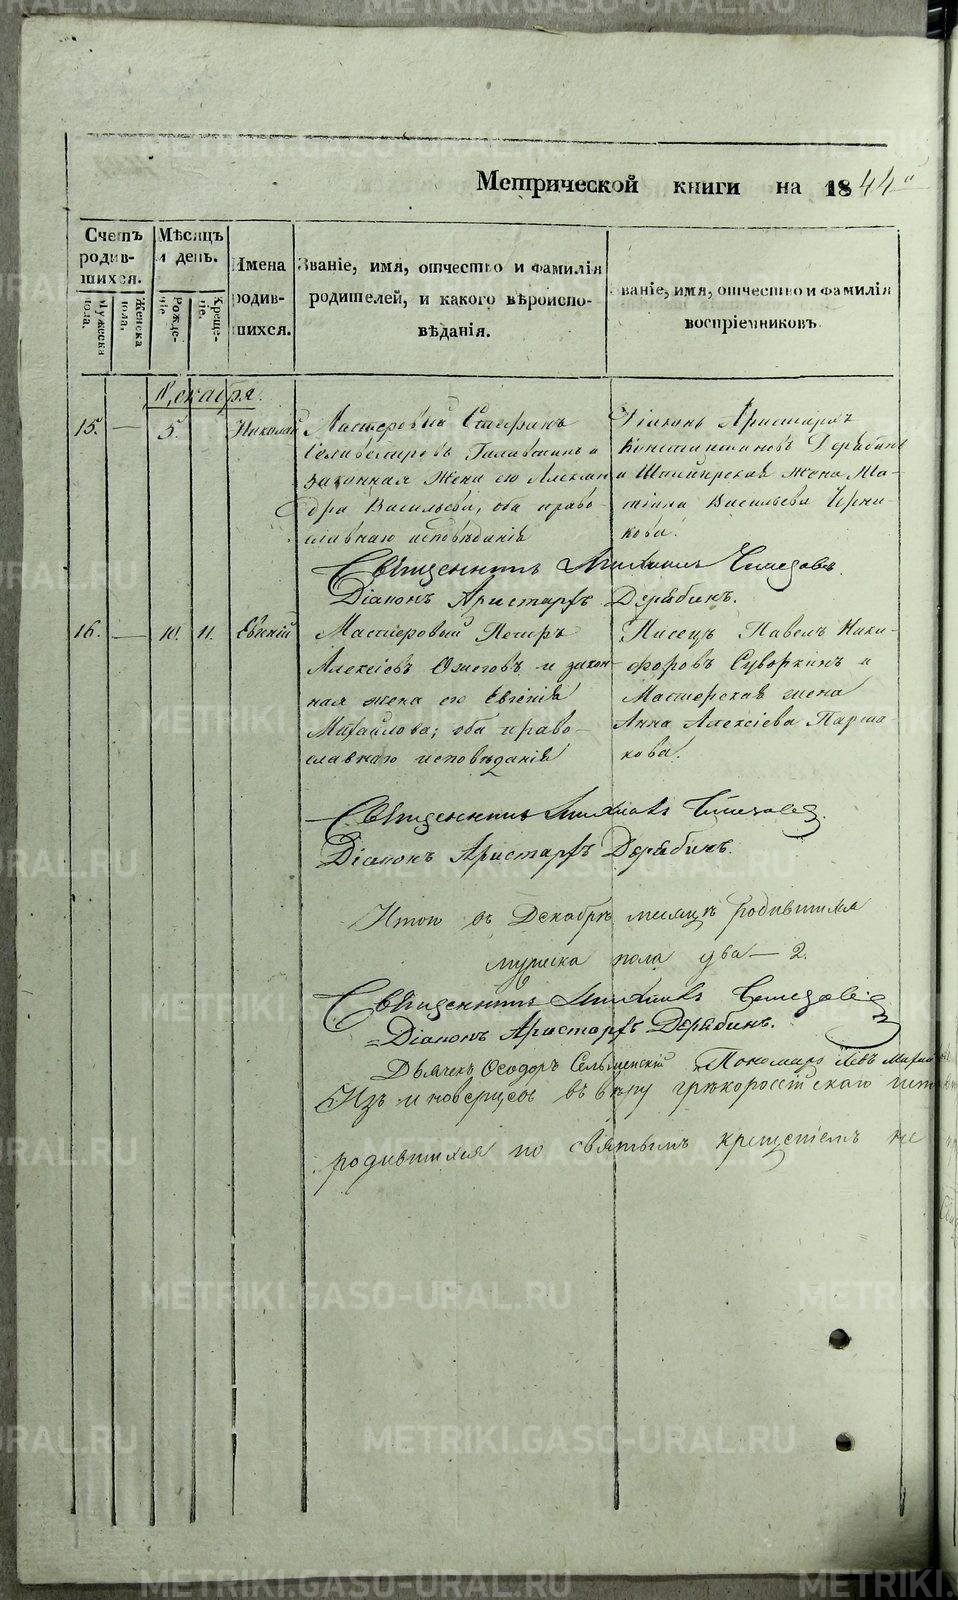 Метрической книги на 1844й
Счетъ родив-шихся.
Мѣсяцъ и день.
Имена родив-шихся.
Званіе, имя, отчество и фамилія
родителей, и какого вѣроиспо-
вѣданія.
Званіе, имя, отчество и фамилія
воспріемниковъ.
Мужеска пола.
Женска пола.
Рожде-ніе.
Креще-ніе.
Декабря.
15. — 5. Николай
Мастеровый Стефанъ
Селиверстровъ и
законная жена его Алексан
дра Васильева, оба право-
славнаго исповѣданія
Діаконъ Аристархъ
Константиновъ Дерябинъ
и жена Ма-
Васильева Черни-
кова.
Священникъ Михаилъ
Діаконъ Аристархъ Дерябинъ.
16. — 10. 11. Евгеній
Мастеровый Петръ
Алексіевъ Ожеговъ и закон-
ная жена его Евгенія
Михайлова; оба право-
славнаго исповѣданія
Писецъ Павелъ Ники-
форовъ Суворкинъ и
Мастерская жена
Анна Алексіева Парша-
кова.
Священникъ Михаилъ
Діаконъ Аристархъ Дерябинъ.
Итого въ Декабрѣ месяцѣ родившихся
мужеска пола два — 2.
Священникъ Михаилъ
Діаконъ Аристархъ Дерябинъ.
Дьячекъ Ѳеодоръ Пономарь Левъ
Изъ иноверцевъ въ вѣру грѣкороссійскаго
родившихся по святымъ крещеніемъ не
METRIKI.GASO-URAL.RU